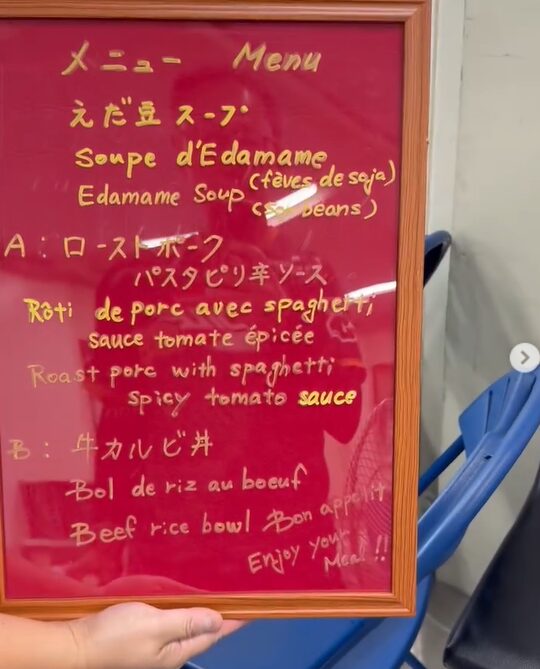 メニュー Menu
えだ豆スープ
Soupe d'Edamame
(fèves de soja)
Edamame Soup
(soybeans)
A: ローストポーク
パスタピリ辛ソース
Rôti de porc avec spaghetti
sauce tomate épicée
Roast porc with spaghetti
spicy tomato sauce
B: 牛カルビ丼
Bol de riz au boeuf
Beef rice bowl
Bon appetit
Enjoy your
Meal !!